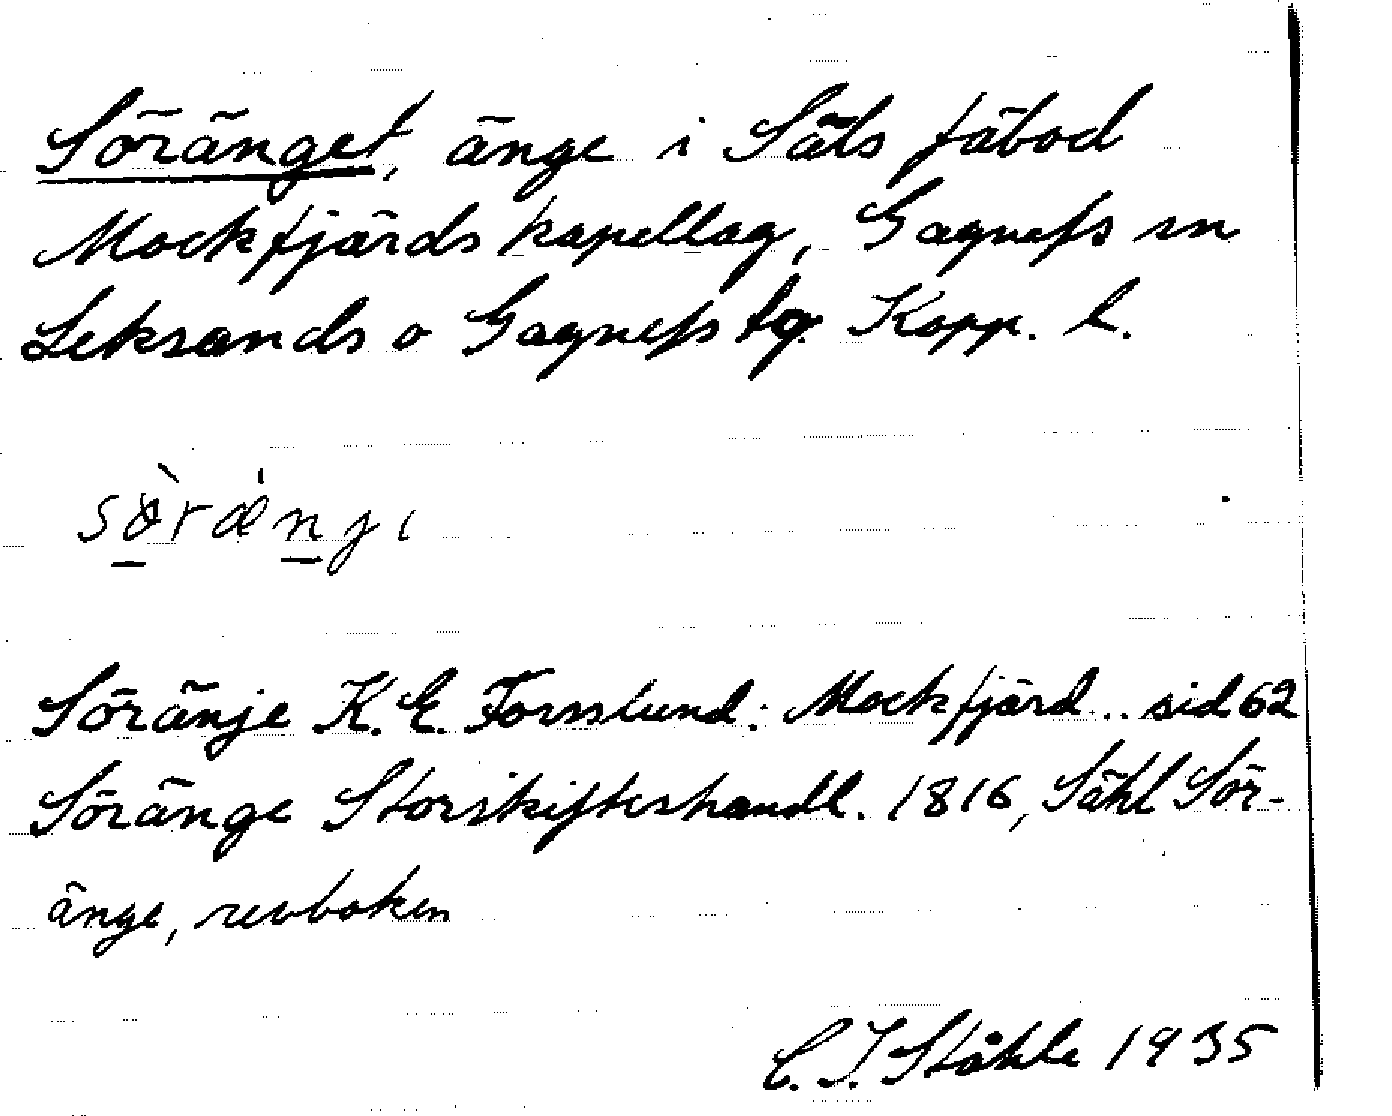 Söränget, änge i Säls fäbod
Mockfjärds kapellag, Gagnefs sn
Leksands o Gagnefs tg. Kopp. l.
sö̀rænji
Söränje K. E. Forsslund: Mockfjärd .. sid 62
Söränge Storskifteshandl. 1816, Sähl Sör-
änge, revboken
C. I. Ståhle 1935